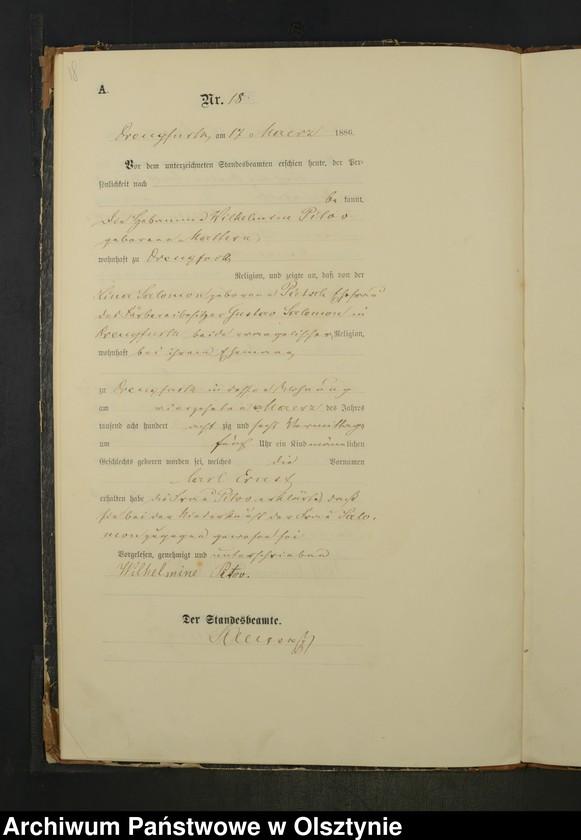 18
A.
Nr. 18
Drengfurth, am 17 Maerz 1886.
Vor dem unterzeichneten Standesbeamten erschien heute, der Per-
sönlichkeit nach
be kannt,
die Hebamme Wilhelmine Pitov
geborene
wohnhaft zu Drengfurth
Religion, und zeigte an, daß von der
Salomon geborene Pietsch Ehefrau
des Färbereibesitzer Gustav Salomon in
Drengfurth beide evangelischer Religion,
wohnhaft bei ihrem Ehemann,
zu Drengfurth in dessen Wohnung
am vierzehnten Maerz des Jahres
tausend acht hundert acht zig und sechs Vormittags
um fünf Uhr ein Kind männlichen
Geschlechts geboren worden sei, welches die Vornamen
Carl Ernst
erhalten habe die Frau Pitov erklärte, daß
sie bei der Niederkunft der Frau Salo-
mon zugegen gewesen sei
Vorgelesen, genehmigt und unterschrieben
Wilhelmine Pitov.
Der Standesbeamte.
Archiwum Państwowe w Olsztynie